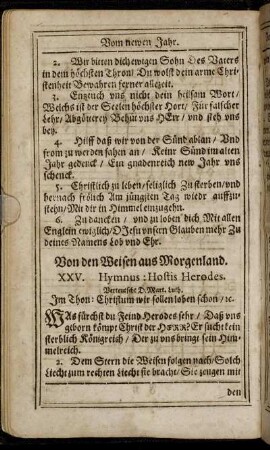 Vom newen Jahr.
2. Wir bitten dich ewigen Sohn Des Vaters
in dem höchsten Thron/ Du wolst dein arme Chri-
stenheit Bewahren ferner allezeit.
3. Entzeuch uns nicht dein heilsam Wort/
Welchs ist der Seelen höchster Hort/ Für falscher
Lehr/ Abgötterey Behüt uns HErr/ und steh uns
bey.
4. Hilff daß wir von der Sünd ablan/ Vnd
from zu werden fahen an/ Keiner Sünd im alten
Jahr gedenck/ Ein gnadenreich new Jahr uns
schenck.
5. Christlich zu leben/ seliglich Zu sterben/ und
hernach frölich Am jüngsten Tag wieder auffzu-
stehn/ Mit dir in Himmel einzugehn.
6. Zu dancken/ und zu loben dich Mit allen
Englein ewiglich/ O Jesu unsern Glauben mehr Zu
deines Namens Lob und Ehr.
Von den Weisen aus Morgenland.
XXV. Hymnus: Hostis Herodes.
Verteutscht D. Mart. Luth.
Im Thon: Christum wir sollen loben schon/ ꝛc.
WAs fürchst du Feind Herodes sehr/ Daß uns
geborn kömpt Christ der HERR? Er sucht kein
sterblich Königreich/ Der zu uns bringt sein Him-
melreich.
2. Dem Stern die Weisen folgen nach/ Solch
Liecht zum rechten Liecht sie bracht/ Sie zeugen mit
den